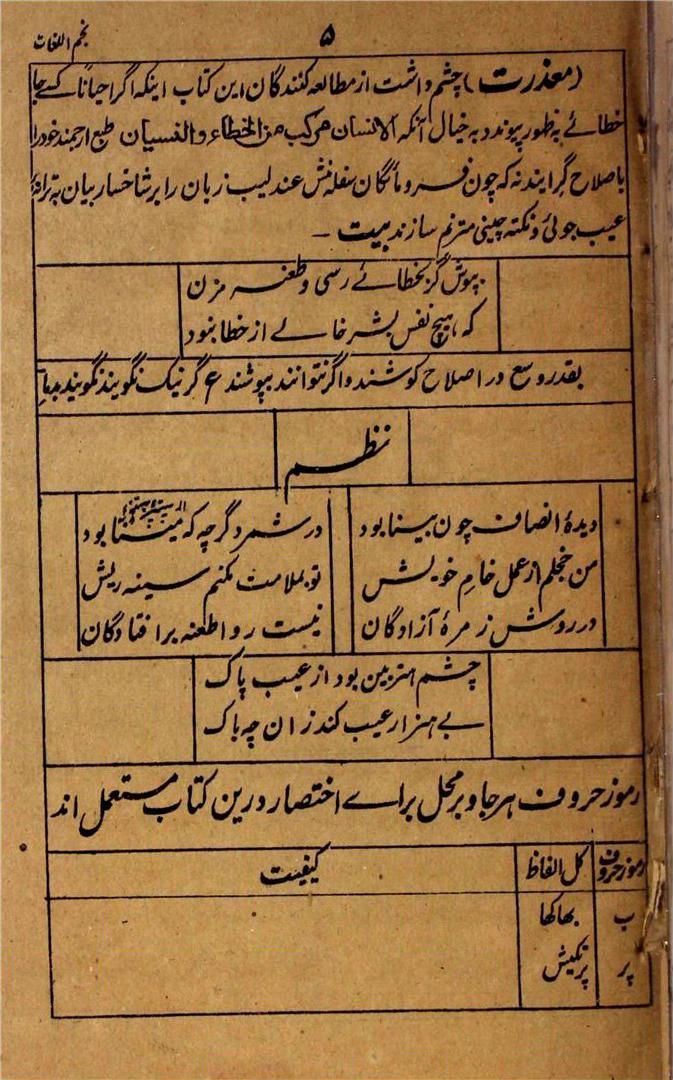 ۵
نجم اللغات
(معذرت) چشم داشت از مطالعه کنندگان این کتاب اینکه اگر احیاناً کسے جا
خطائے بظهور پیوندد به خیال آنکه الانسان مرکب من الخطاء والنسیان طبع ارجمند خود را
باصلاح گرایند نه که چون فرومائگان سفله منش عندلیب زبان را بر شاخسار بیان به ترانهٔ
عیب جوئی و نکته چینی مترنم سازند بیت –
بپوش گر بخطائے رسی و طعنه مزن
که هیچ نفس بشر خالی از خطا نبود
بقدر وسع در اصلاح کوشند و اگر نتوانند بپوشند ع گر نیک نگویند نگویند بد ما
نظم
دیدهٔ انصاف چون بینا بود
در شمرد گرچه که مینا بود
من خجلم از عمل خام خویش
تو بملامت مکنم سینه ریش
در روش زمرهٔ آزادگان
نیست روا طعنه بر افتادگان
چشم هنربین بود از عیب پاک
بے هنر ار عیب کند زان چه باک
رموز حروف هر جا و بر محل براے اختصار درین کتاب مستعمل اند
رموز حروف
کل الفاظ
کیفیت
ب
بھاکھا
پر
پرتکیش